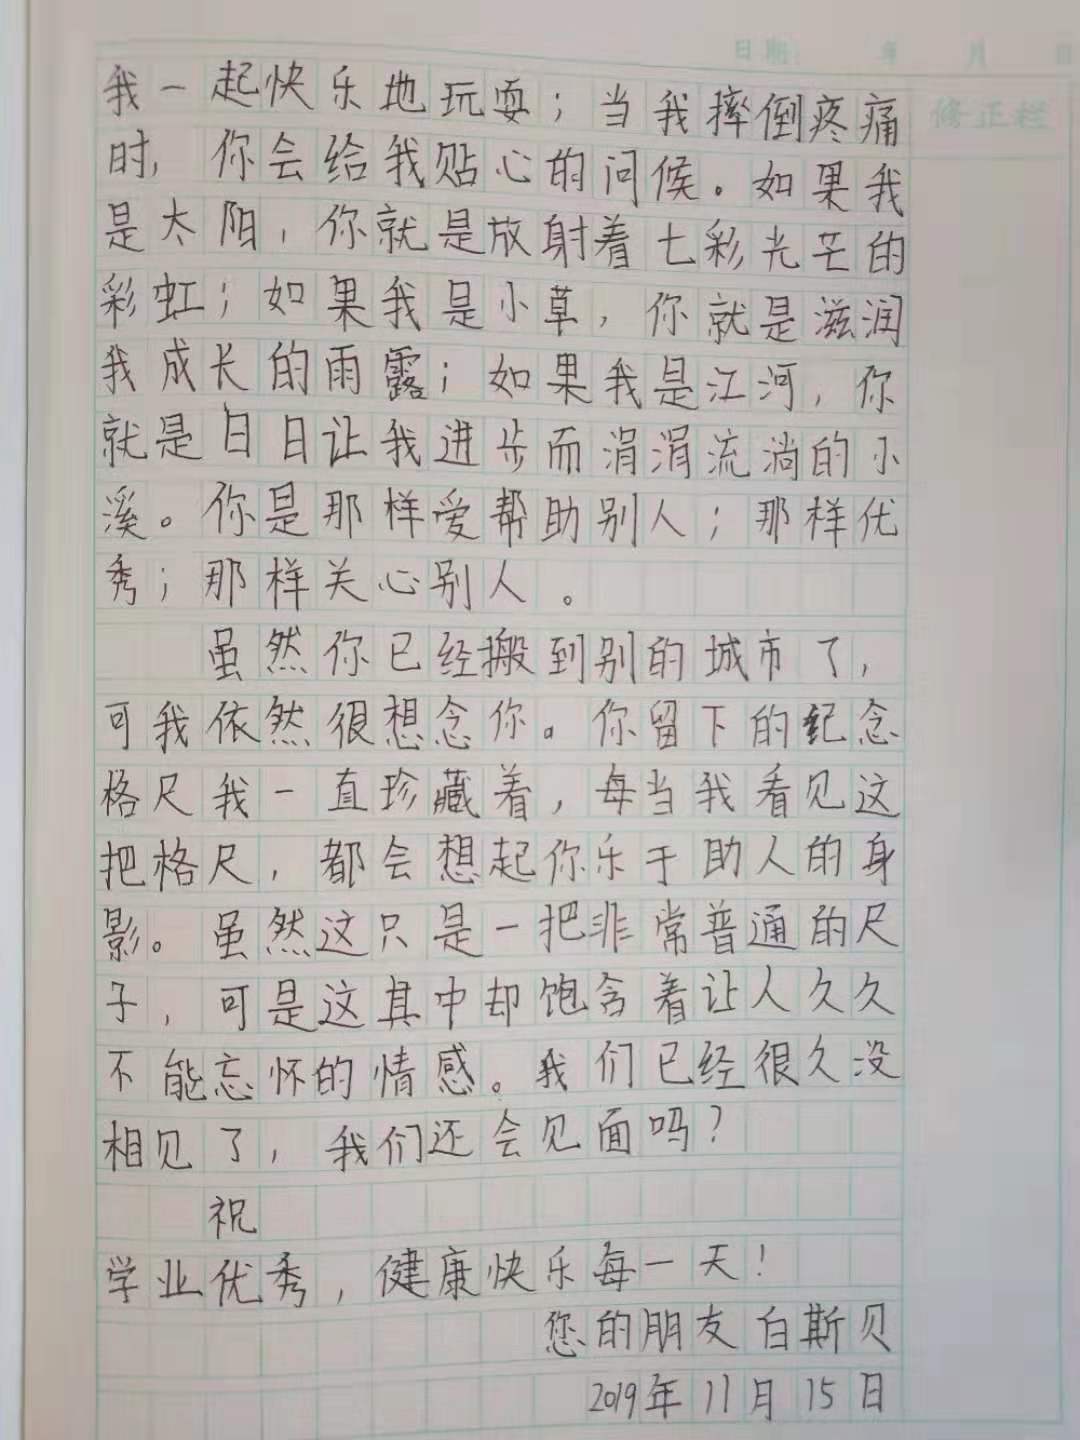 日期： 年 月 日
修正栏
我一起快乐地玩耍；当我摔倒疼痛
时，你会给我贴心的问候。如果我
是太阳，你就是放射着七彩光芒的
彩虹；如果我是小草，你就是滋润
我成长的雨露；如果我是江河，你
就是日日让我进步而涓涓流淌的小
溪。你是那样爱帮助别人；那样优
秀；那样关心别人。
虽然你已经搬到别的城市了，
可我依然很想念你。你留下的纪念
格尺我一直珍藏着，每当我看见这
把格尺，都会想起你乐于助人的身
影。虽然这只是一把非常普通的尺
子，可是这其中却饱含着让人久久
不能忘怀的情感。我们已经很久没
相见了，我们还会见面吗？
祝
学业优秀，健康快乐每一天！
您的朋友白斯贝
2019年11月15日